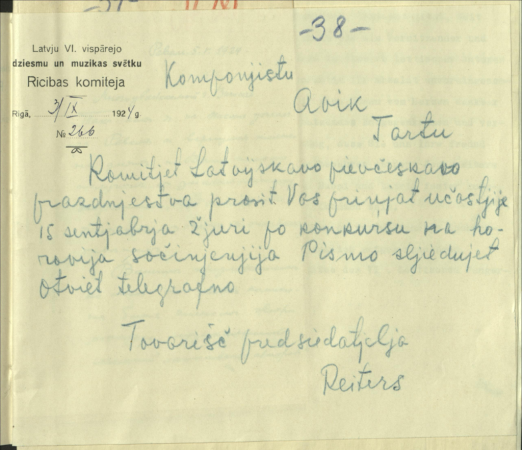 -38-
Latvju VI. vispārejo
dziesmu un muzikas svētku
Rīcības komiteja
Rīgā, 3/IX 1924 g.
№ 266
Komponjistu
Avik
Tartu
Komitjet Latvijskavo pievčeskavo
prazdnjestva prosit Vas prinjat učastjije
15 sentjabrja žjuri po konkursu na ho-
rovija sočinjenjija Pismo sljedujet
Otviet telegrafno
Tovarišč predsiedatjelja
Reiters